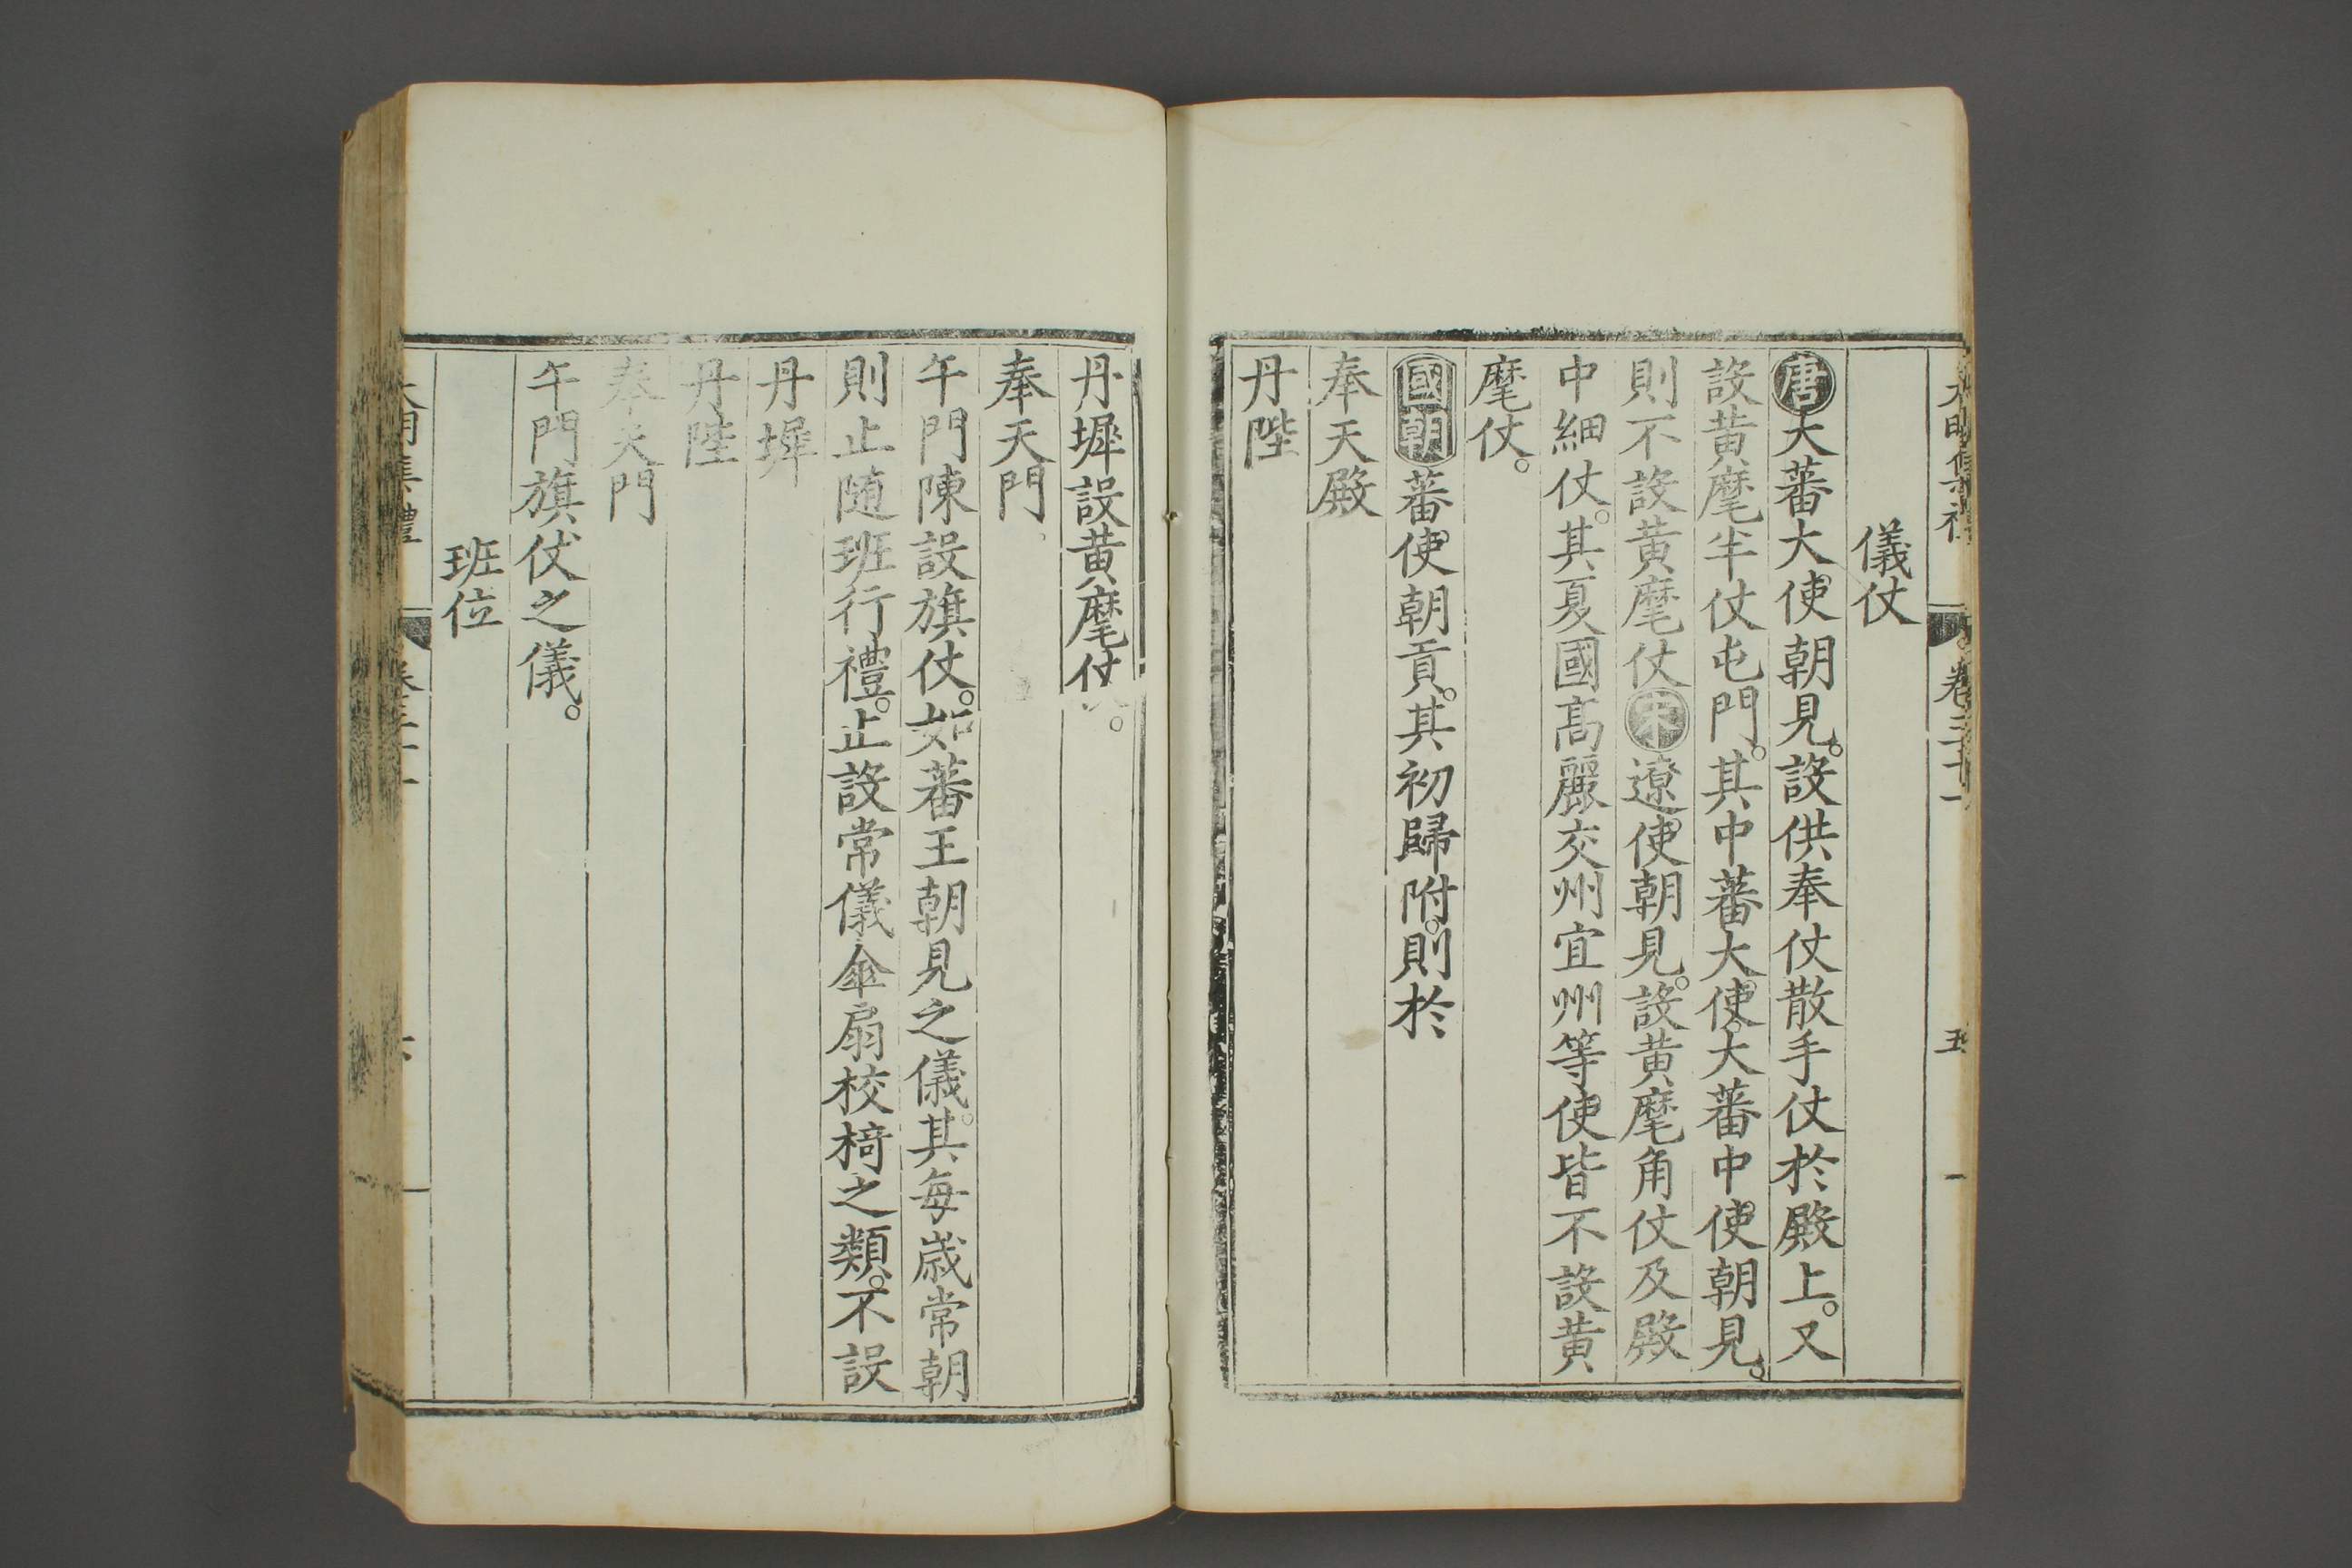 儀仗
唐大蕃大使朝見。設供奉仗散手仗於殿上。又
設黄麾半仗屯門。其中蕃大使。大蕃中使朝見。
則不設黄麾仗宋遼使朝見。設黄麾角仗及殿
中細仗。其夏國高麗交州宜州等使皆不設黄
麾仗。
國朝蕃使朝貢。其初歸附。則於
奉天殿
丹陛
丹墀設黄麾仗
奉天門
午門陳設旗仗。如蕃王朝見之儀。其每歲常朝
則止随班行禮。止設常儀傘扇校椅之類。不設
丹墀
丹陛
奉天門
午門旗仗之儀。
班位